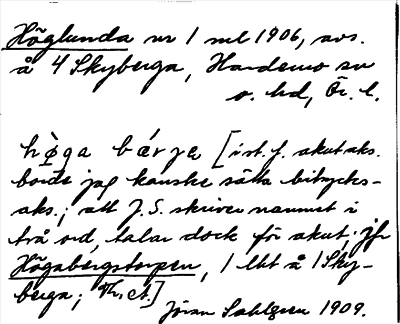 Höglunda nr 1 ml 1906, avs.
å 4 Skyberga, Hardemo sn
o. hd, Ör. l.
hø̀ga bǽrɣa [i st. f. akut aks.
borde jag kanske sätta bitrycks-
aks.; att J. S. skriver namnet i
två ord, talar dock för akut; jfr
Högabergstorpen, 1 lht å 1 Sky-
berga; Th. ct.]
Jöran Sahlgren 1909.